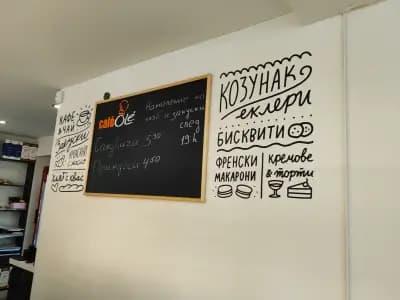 КАФЕ
& ЧАЙ
ЗАКУСКИ
ХЛЯБ С КВАС
café Olé
Намаление на
кафе и закуски
след
19 h
Сандвичи 5,90
4,50
КОЗУНАК
еклери
БИСКВИТИ
ФРЕНСКИ
МАКАРОНИ
кремове
& торти